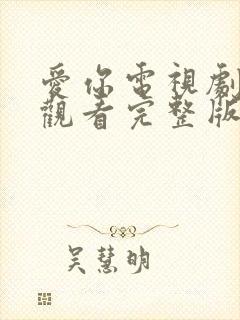 愛你電視劇
觀看完整版
吳慧明